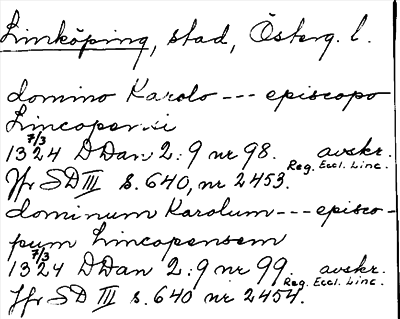 Linköping, stad, Österg. l.
domino Karolo --- episcopo
Lincopensi
7/3
1324 DDan 2:9 nr 98. avskr.
Reg. Eccl. Linc.
Jfr SD III s. 640, nr 2453.
dominum Karolum --- episco-
pum Lincopensem
7/3
1324 DDan 2:9 nr 99. avskr.
Reg. Eccl. Linc.
Jfr SD III s. 640 nr 2454.